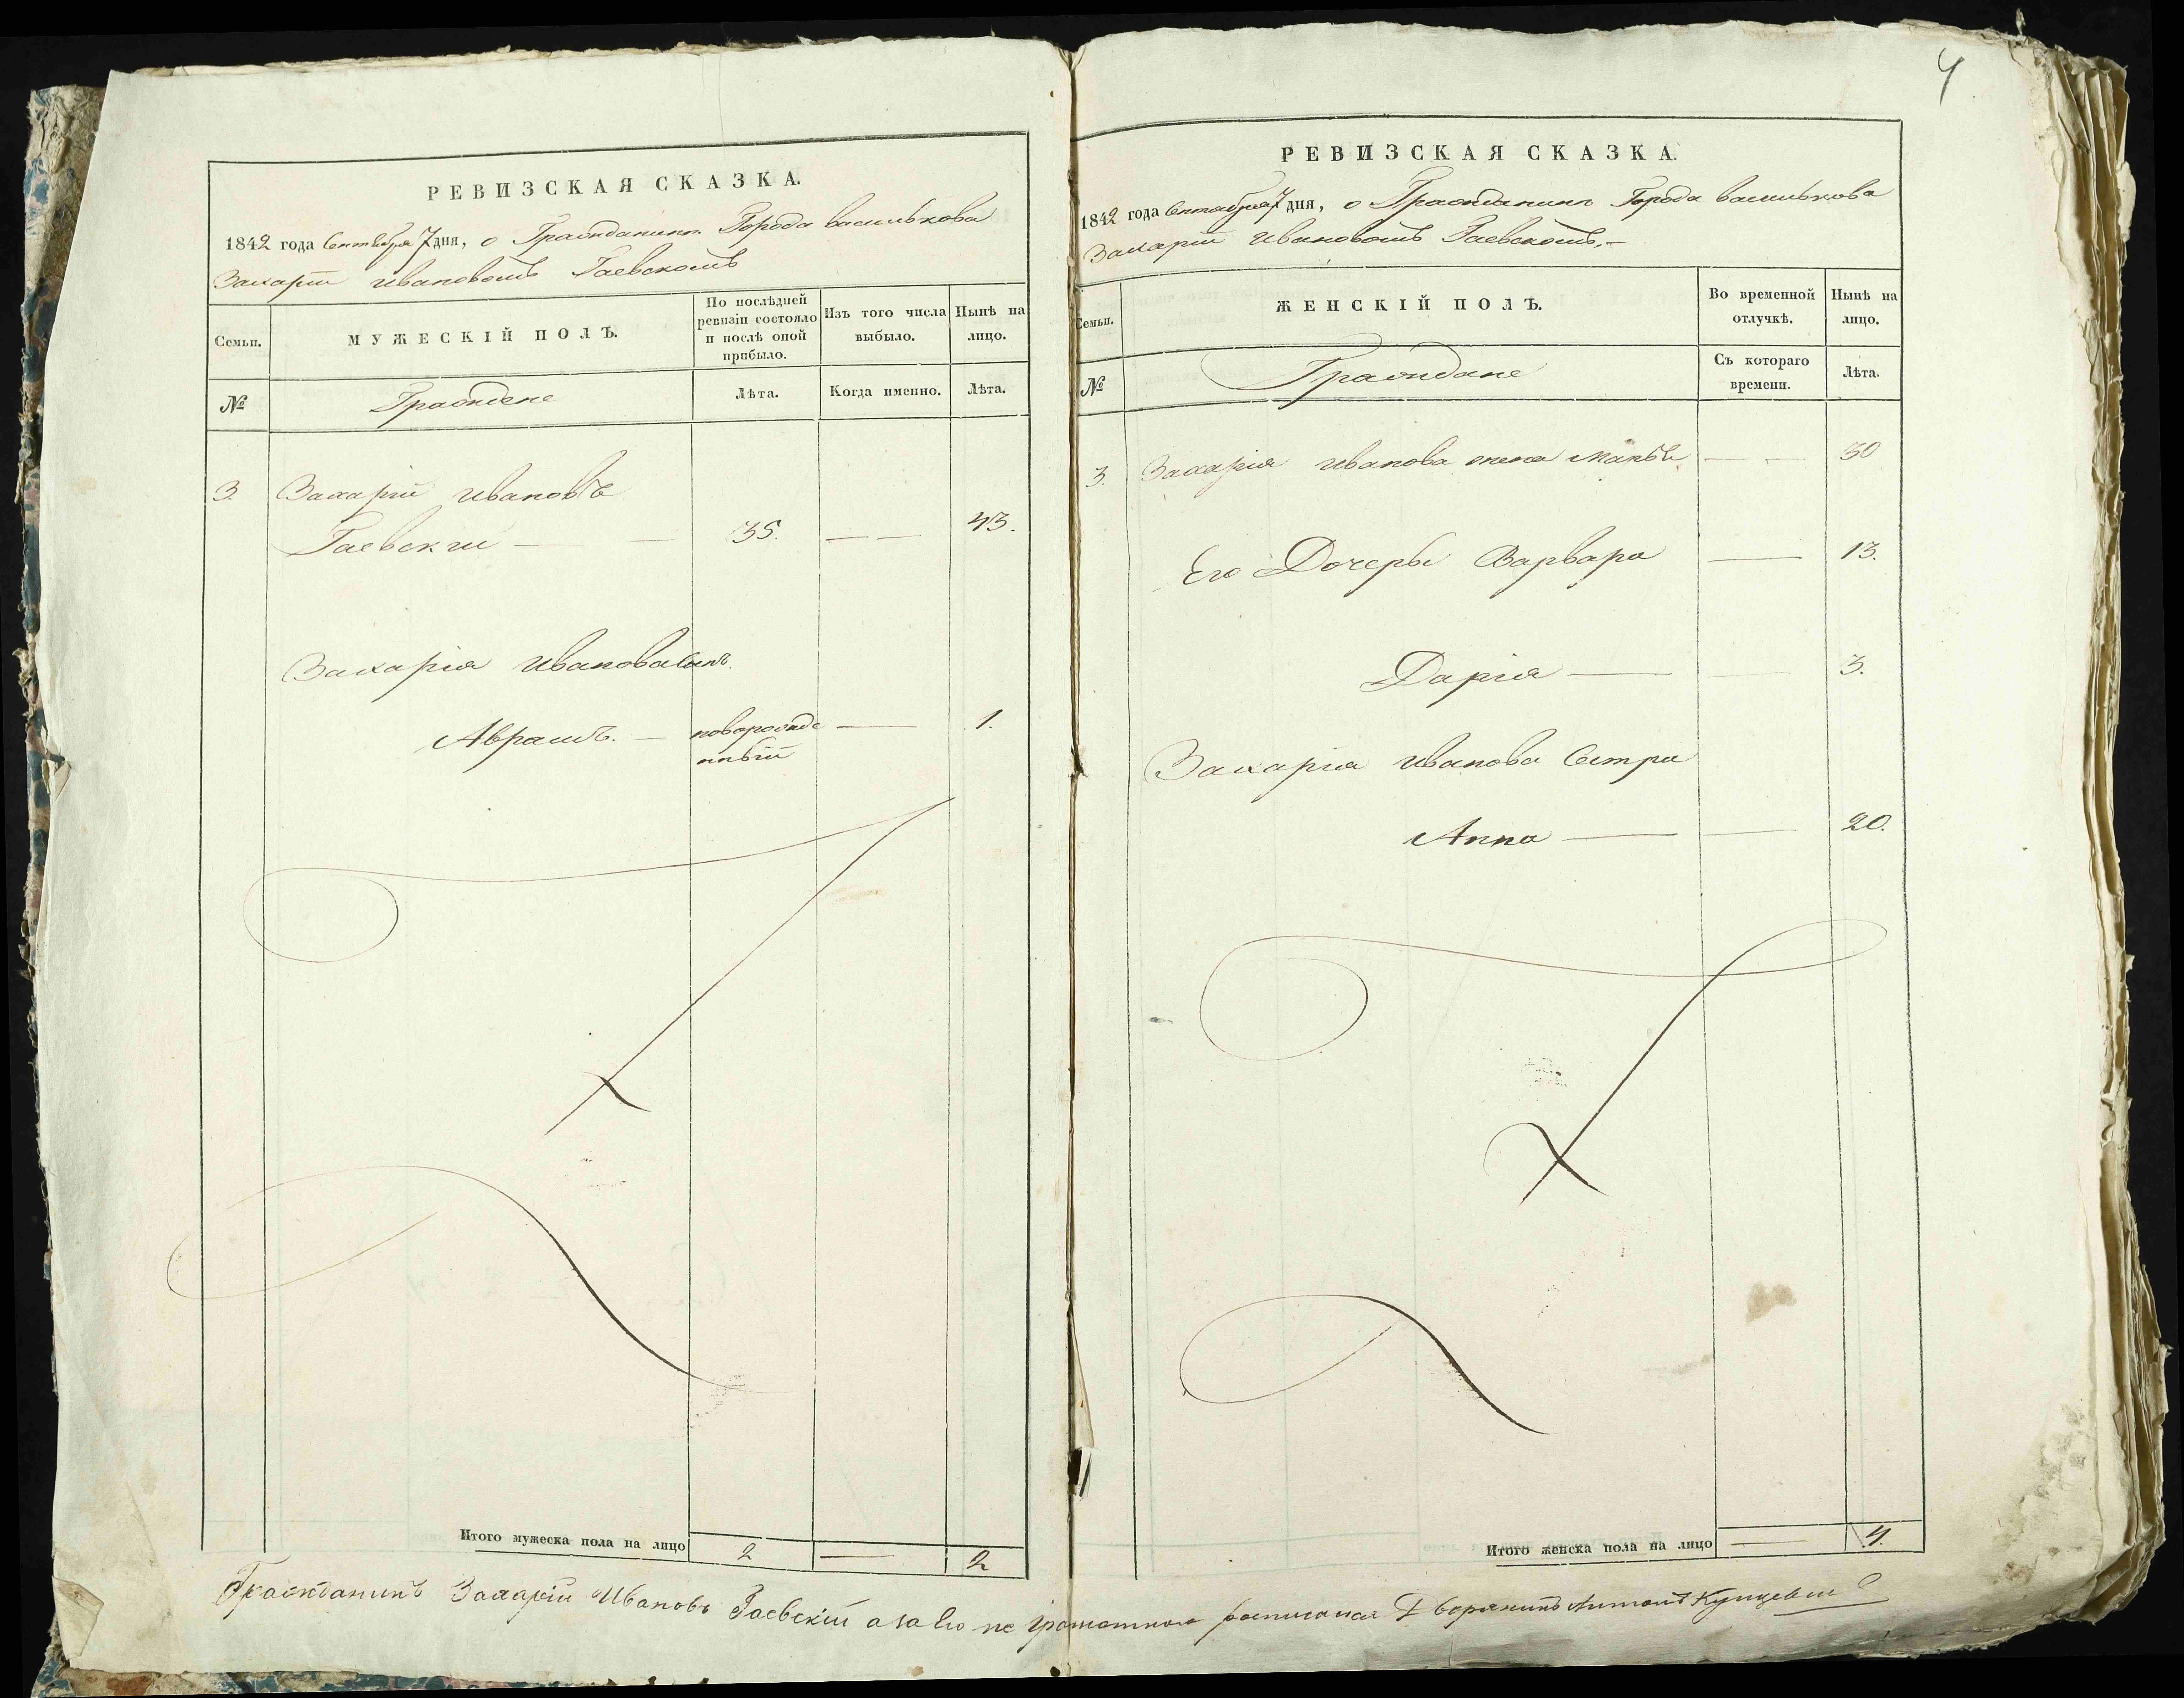 4
РЕВИЗСКАЯ СКАЗКА.
1842 года Сентября 7 дня, о Гражданинѣ Города Василькова
Захаріи Ивановомъ Гаевскомъ
Семьи.
МУЖЕСКІЙ ПОЛЪ.
По послѣдней ревизіи состояло и послѣ оной прибыло.
Изъ того числа выбыло.
Нынѣ на лицо.
№
Граждане
Лѣта.
Когда именно.
Лѣта.
3. Захарій Ивановъ
Гаевскій — — 35. — — 43.
Захарія Иванова Сынъ.
Аврамъ. — новорожде — 1.
нный
Итого мужеска пола на лицо 2 — 2
РЕВИЗСКАЯ СКАЗКА.
1842 года Сентября 7 дня, о Гражданинѣ Города Василькова
Захаріи Ивановомъ Гаевскомъ. —
Семьи.
ЖЕНСКІЙ ПОЛЪ.
Во временной отлучкѣ.
Нынѣ на лицо.
№
Граждане
Съ котораго времени.
Лѣта.
3. Захарія Иванова жена — — 30
Его Дочеры Варвара — 13.
Дарія — — 3.
Захарія Иванова Сестра
Анна — — 20.
Итого женска пола на лицо — 4.
Гражданинъ Захарій Ивановъ Гаевскій а за Его не грамотного росписался Дворянинъ Антонъ